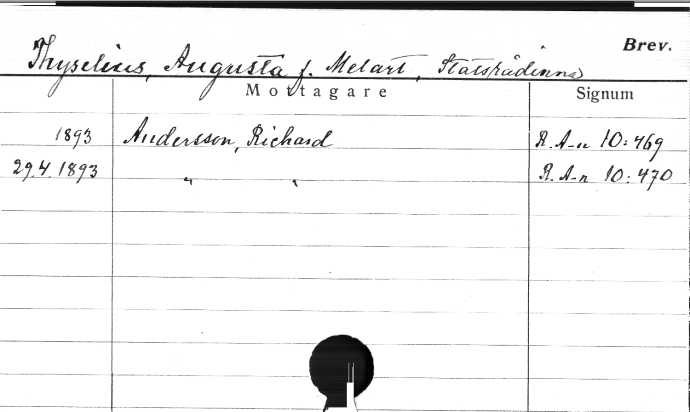 Brev.
Thyselius, Augusta f. Melart, Statsrådinna
Mottagare Signum
1893 Andersson, Richard R. A-n 10:469
29.4.1893 " " R. A-n 10:470